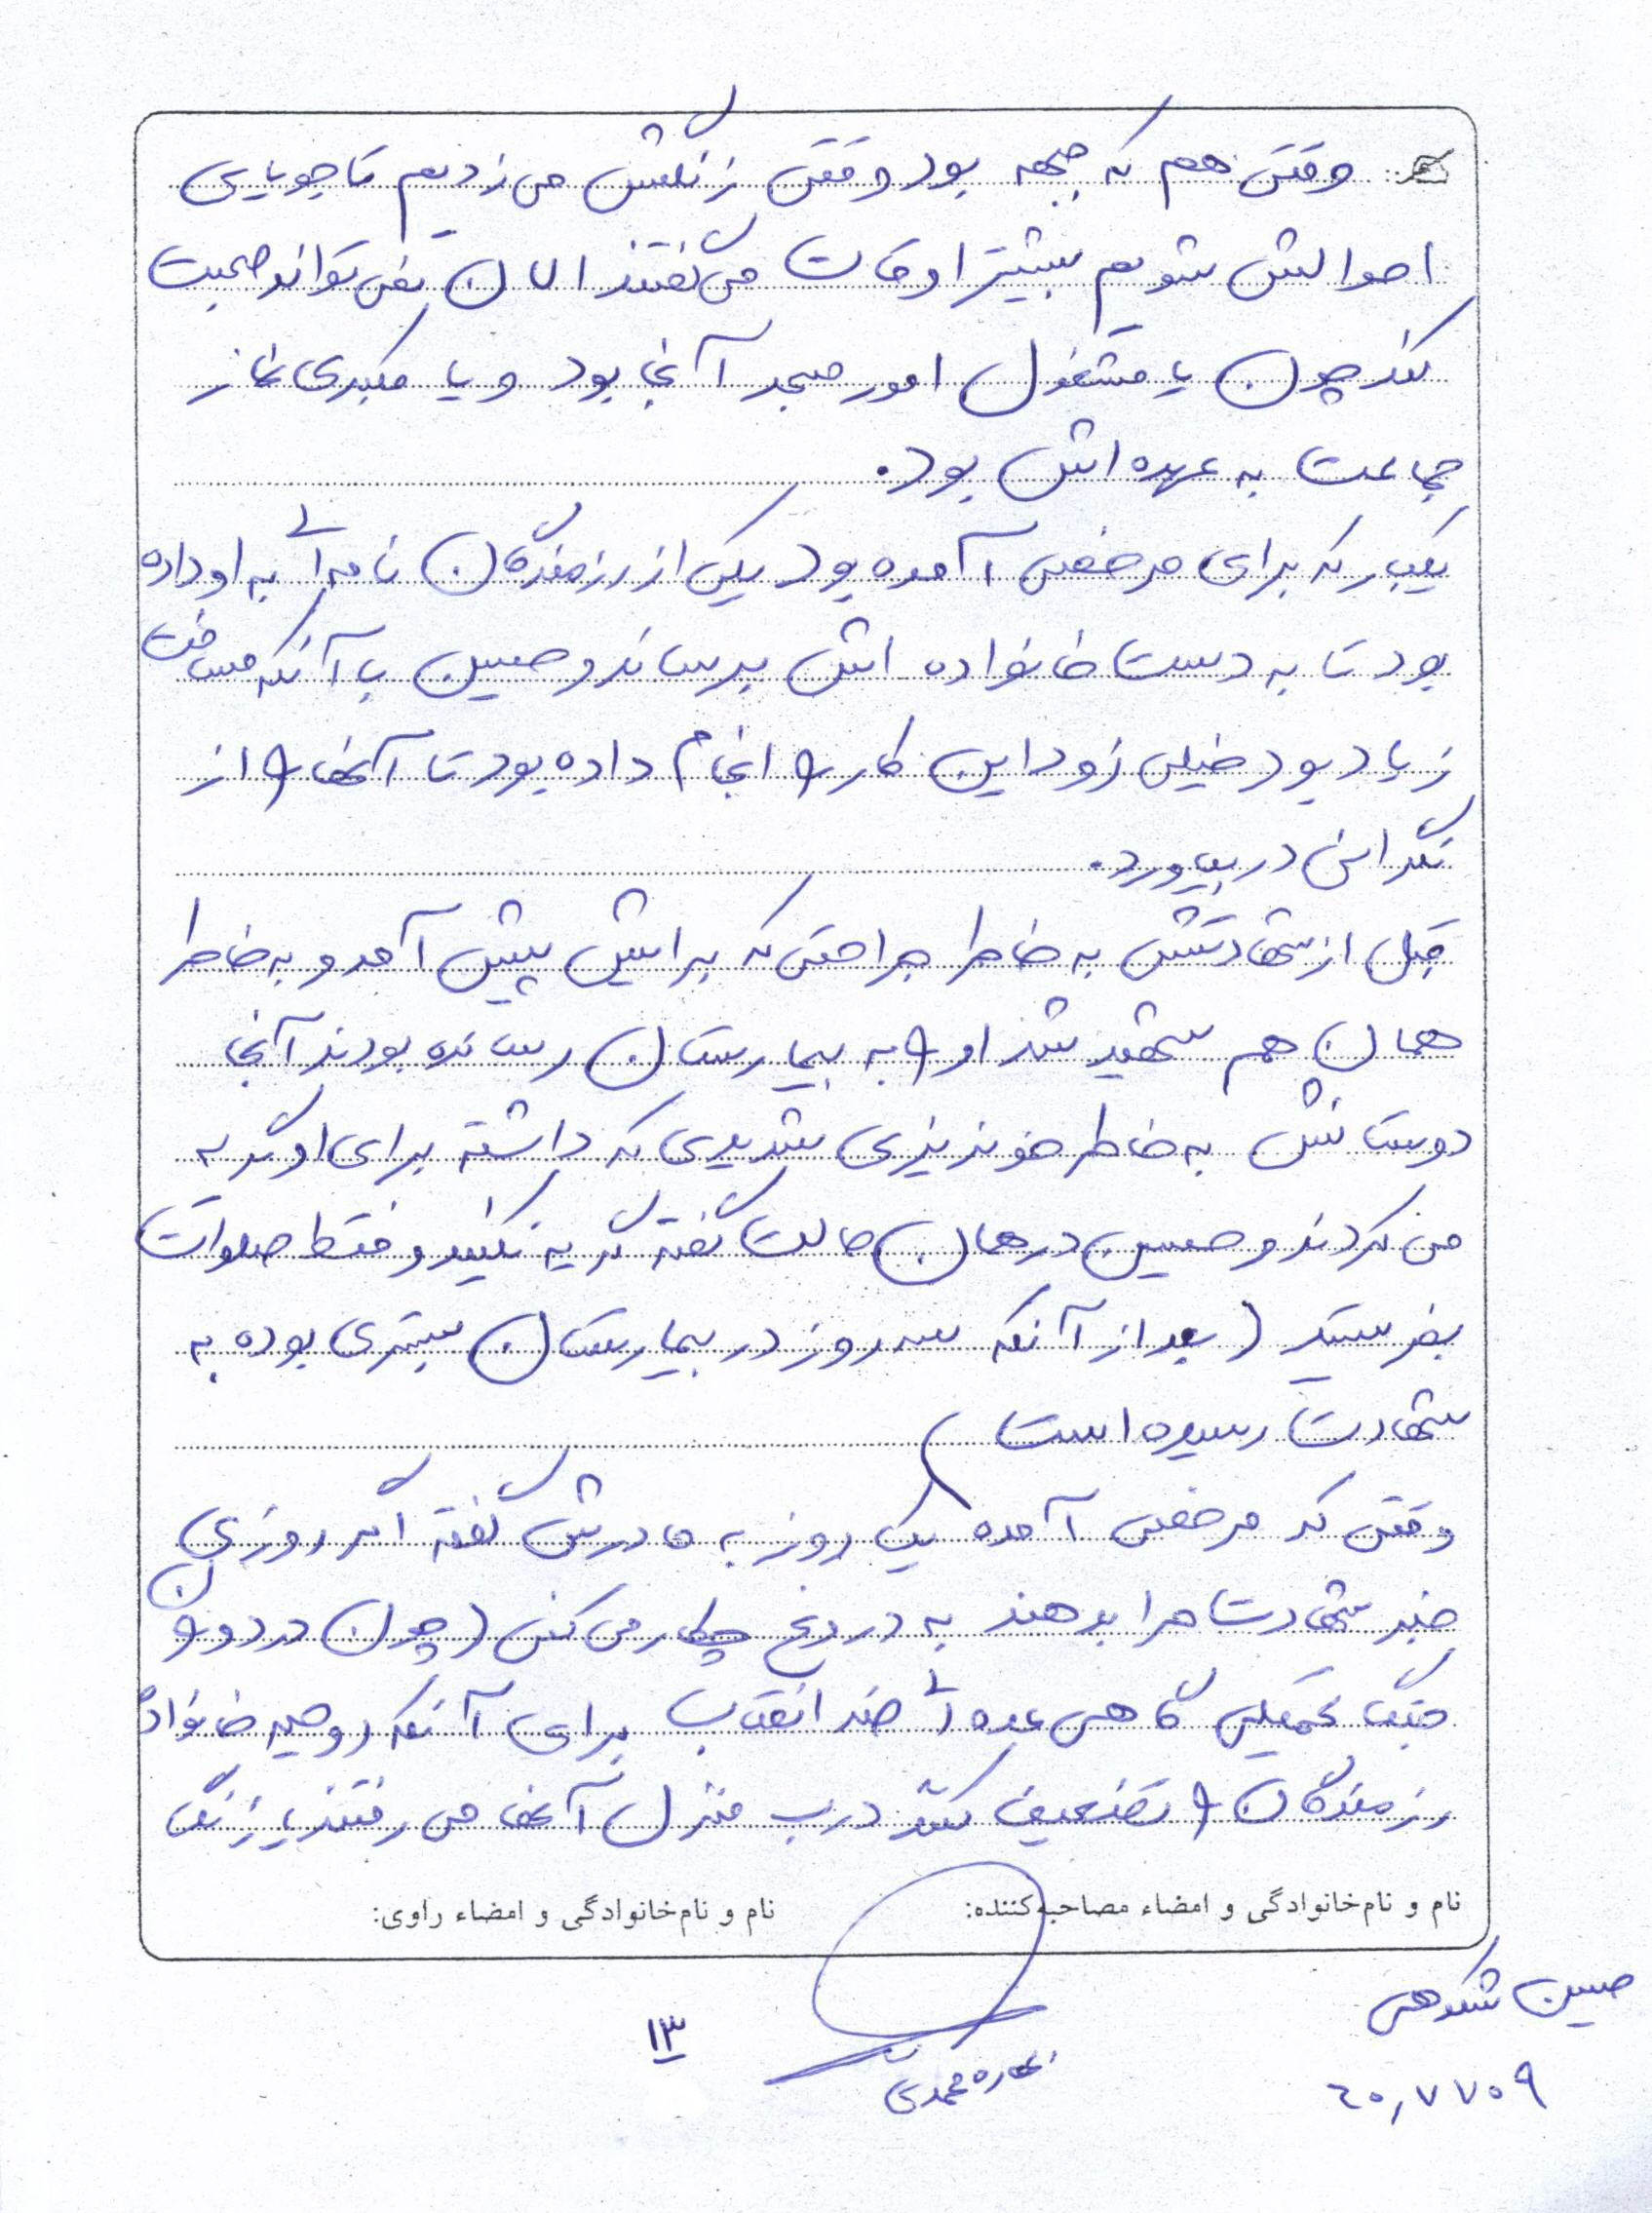 وقتی هم که جبهه بود وقتی زنگش می زدیم تا جویای
احوالش شویم بیشتر اوقات می گفتند الان نمی تواند صحبت
کند چون یا مشغول امور مسجد آنجا بود و یا مکبری نماز
جماعت به عهده اش بود.
یکبار که برای مرخصی آمده بود یکی از رزمندگان نامه اْی به او داده
بود تا به دست خانواده اش برساند و حسین با آنکه مسافت
زیاد بود خیلی زود این کار را انجام داده بود تا آنها را از
نگرانی در بیاورد.
قبل از شهادتش به خاطر جراحتی که برایش پیش آمد و به خاطر
همان هم شهید شد او را به بیمارستان رسانده بودند آنجا
دوستانش به خاطر خونریزی شدیدی که داشته برای او گریه
می کردند و حسین در همان حالت گفته گریه نکنید و فقط صلوات
بفرستید (بعد از آنکه سه روز در بیمارستان بستری بوده به
شهادت رسیده است)
وقتی که مرخصی آمده یک روز به مادرش گفته اگر روزی
خبر شهادت مرا بدهند به دروغ چکار می کنی (چون در دوران
جنگ تحمیلی گاهی عده اْی ضد انقلاب برای آنکه روحیه خانواده
رزمندگان را تضعیف کنند درب منزل آنها می رفتند یا زنگ
نام و نام‌خانوادگی و امضاء مصاحبه‌کننده: نام و نام‌خانوادگی و امضاء راوی:
حسین شکوهی
بهاره محمدی
۱۳
۶۰۷۷۰۹